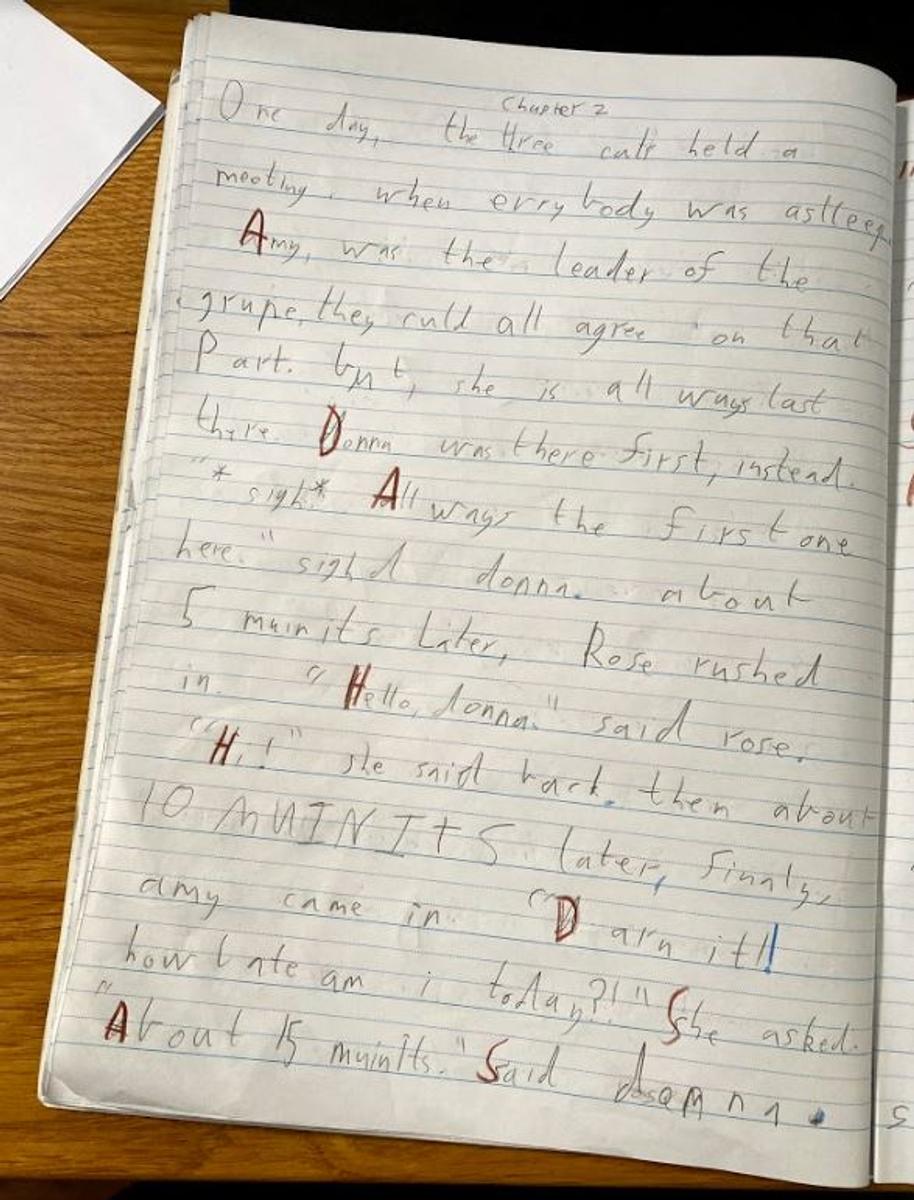 Chapter 2
One day, the three cats held a
meeting. when errybody was astleep.
Amy, was the leader of the
grupe, they culd all agree on that
Part. but, she is all ways last
there. Donna was there first, instead.
"*sigh* All ways the first one
here." sighd donna. about
5 muinits Later, Rose rushed
in. "Hello, donna." said rose.
"Hi!" she said back. then about
10 MUINItS later, finaly,
amy came in. "Darn it!!
how late am i today?!" She asked.
"About 15 muinits." Said donna.